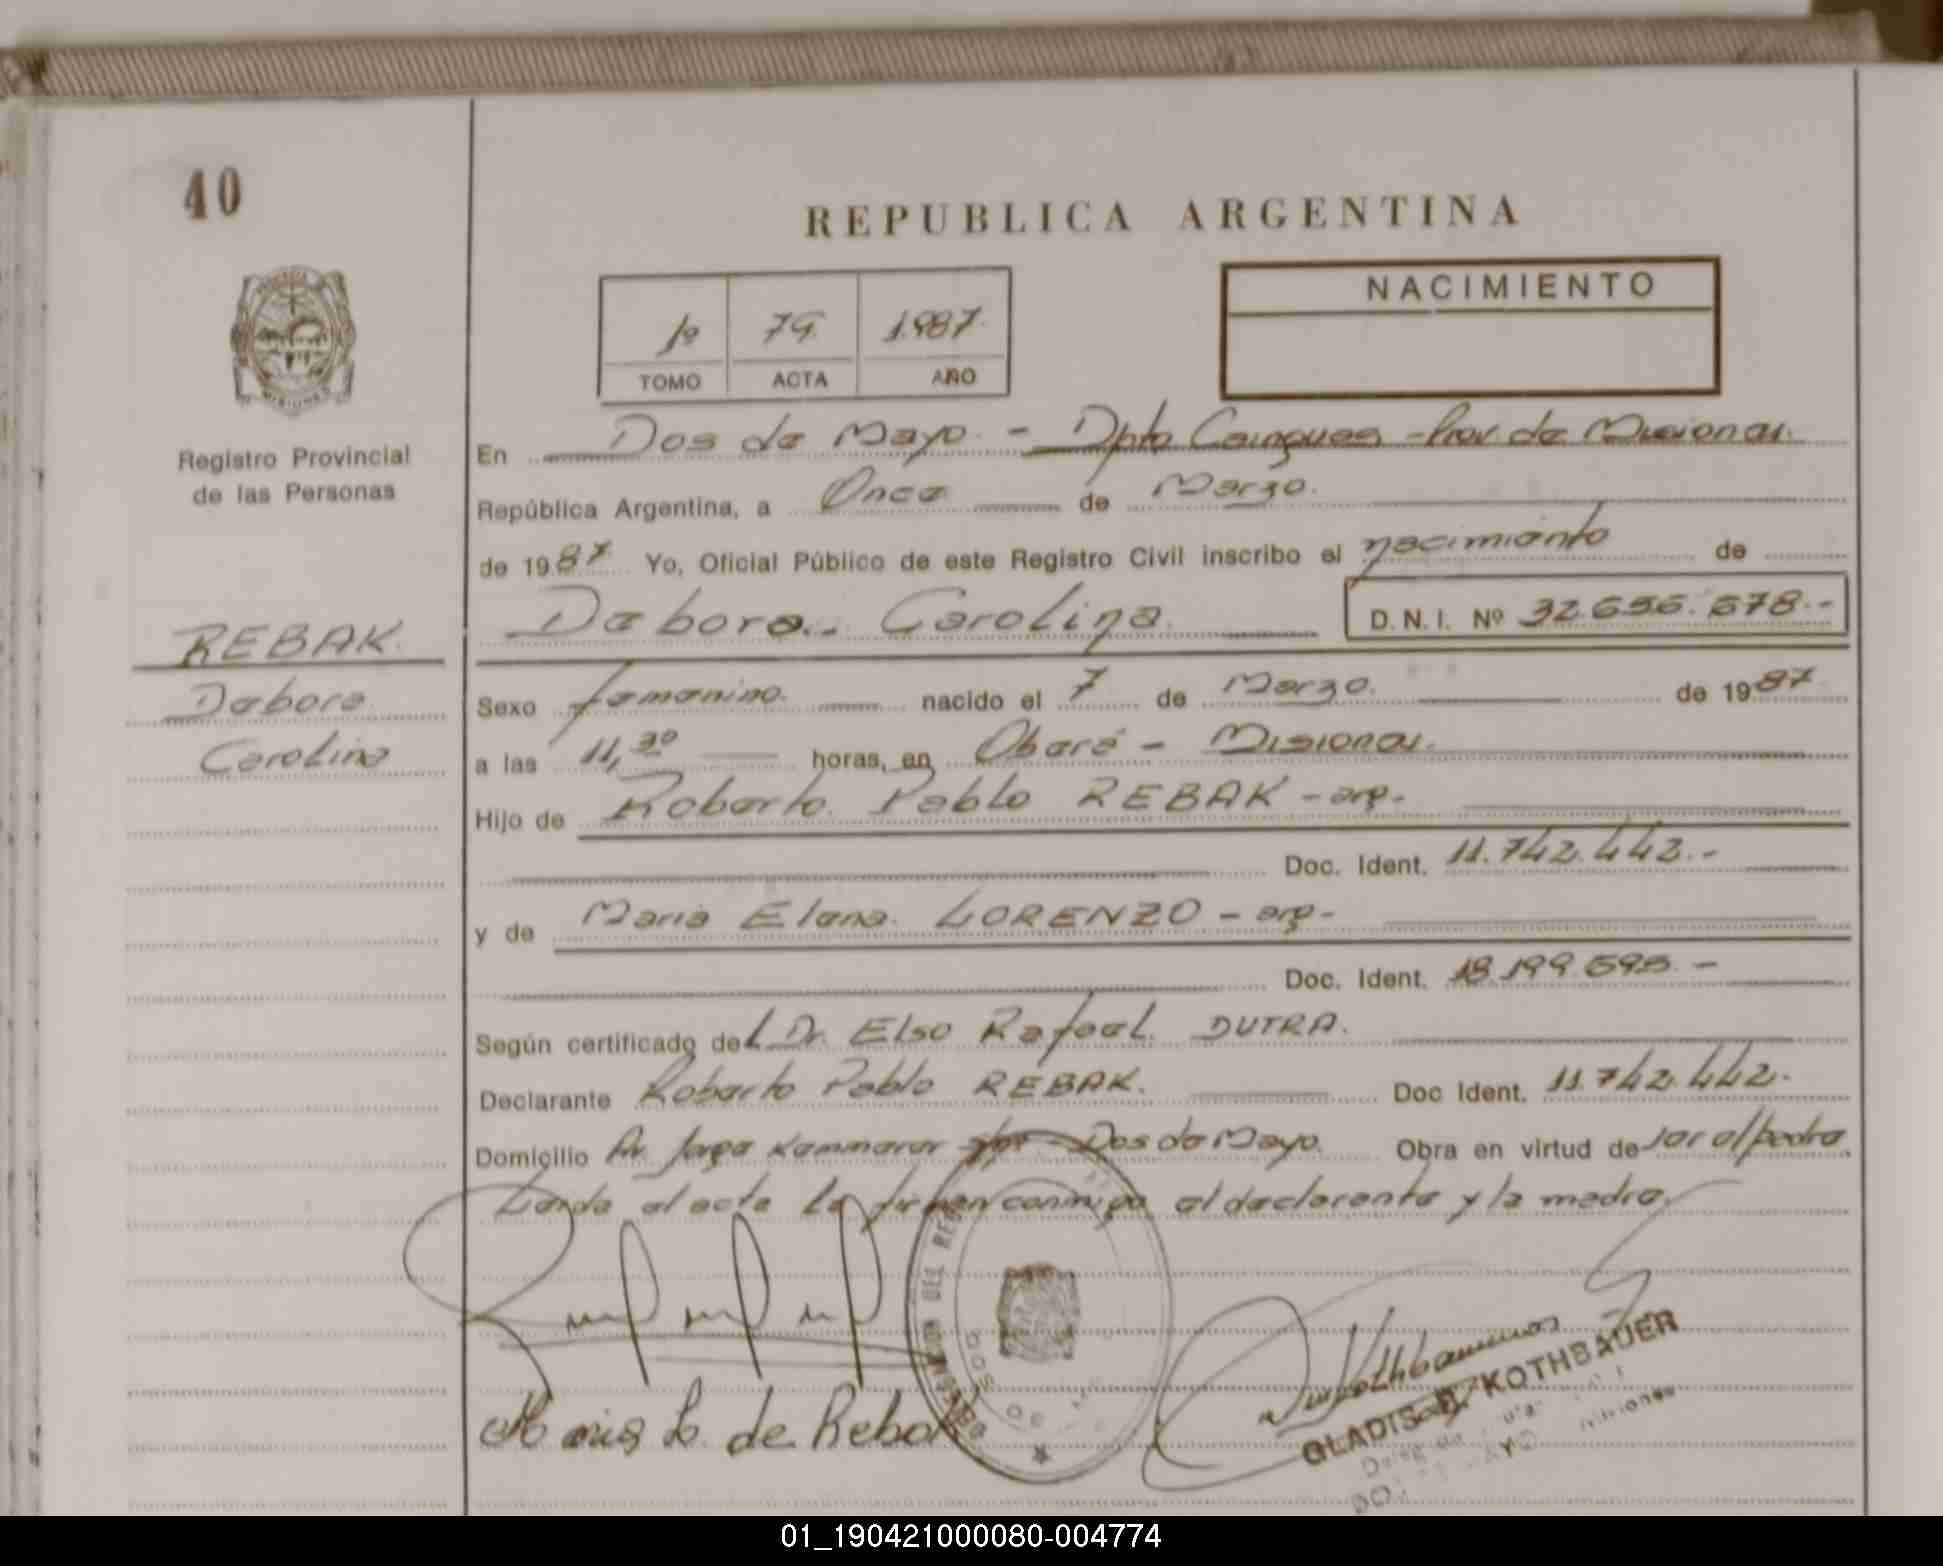 40
REPUBLICA ARGENTINA
1º 79 1.987.
TOMO ACTA AÑO
NACIMIENTO
Registro Provincial
de las Personas
En Dos de Mayo. - Dpto Cainguas - Prov de Misiones.
República Argentina, a Once de Marzo.
de 1987 Yo, Oficial Público de este Registro Civil inscribo el nacimiento de
Debora.. Carolina. D.N.I. Nº 32.656.678.-
REBAK.
Debora
Carolina
Sexo femenino. nacido el 7 de Marzo. de 1987
a las 11,30 horas, en Oberá - Misiones.
Hijo de Roberto. Pablo REBAK - arg.-
Doc. Ident. 11.742.442.-
y de Maria Elena. LORENZO - arg-
Doc. Ident. 18.199.595.-
Según certificado del Dr. Elso Rafael. DUTRA.
Declarante Roberto Pablo REBAK. Doc Ident. 11.742.442.
Domicilio Av. Jorge Kammerer Dos de Mayo. Obra en virtud de ser el padre
Leida el acta la firman conmigo el declarante y la madre.
Maria L. de Rebak
GLADIS KOTHBAUER
DOS DE
01_190421000080-004774